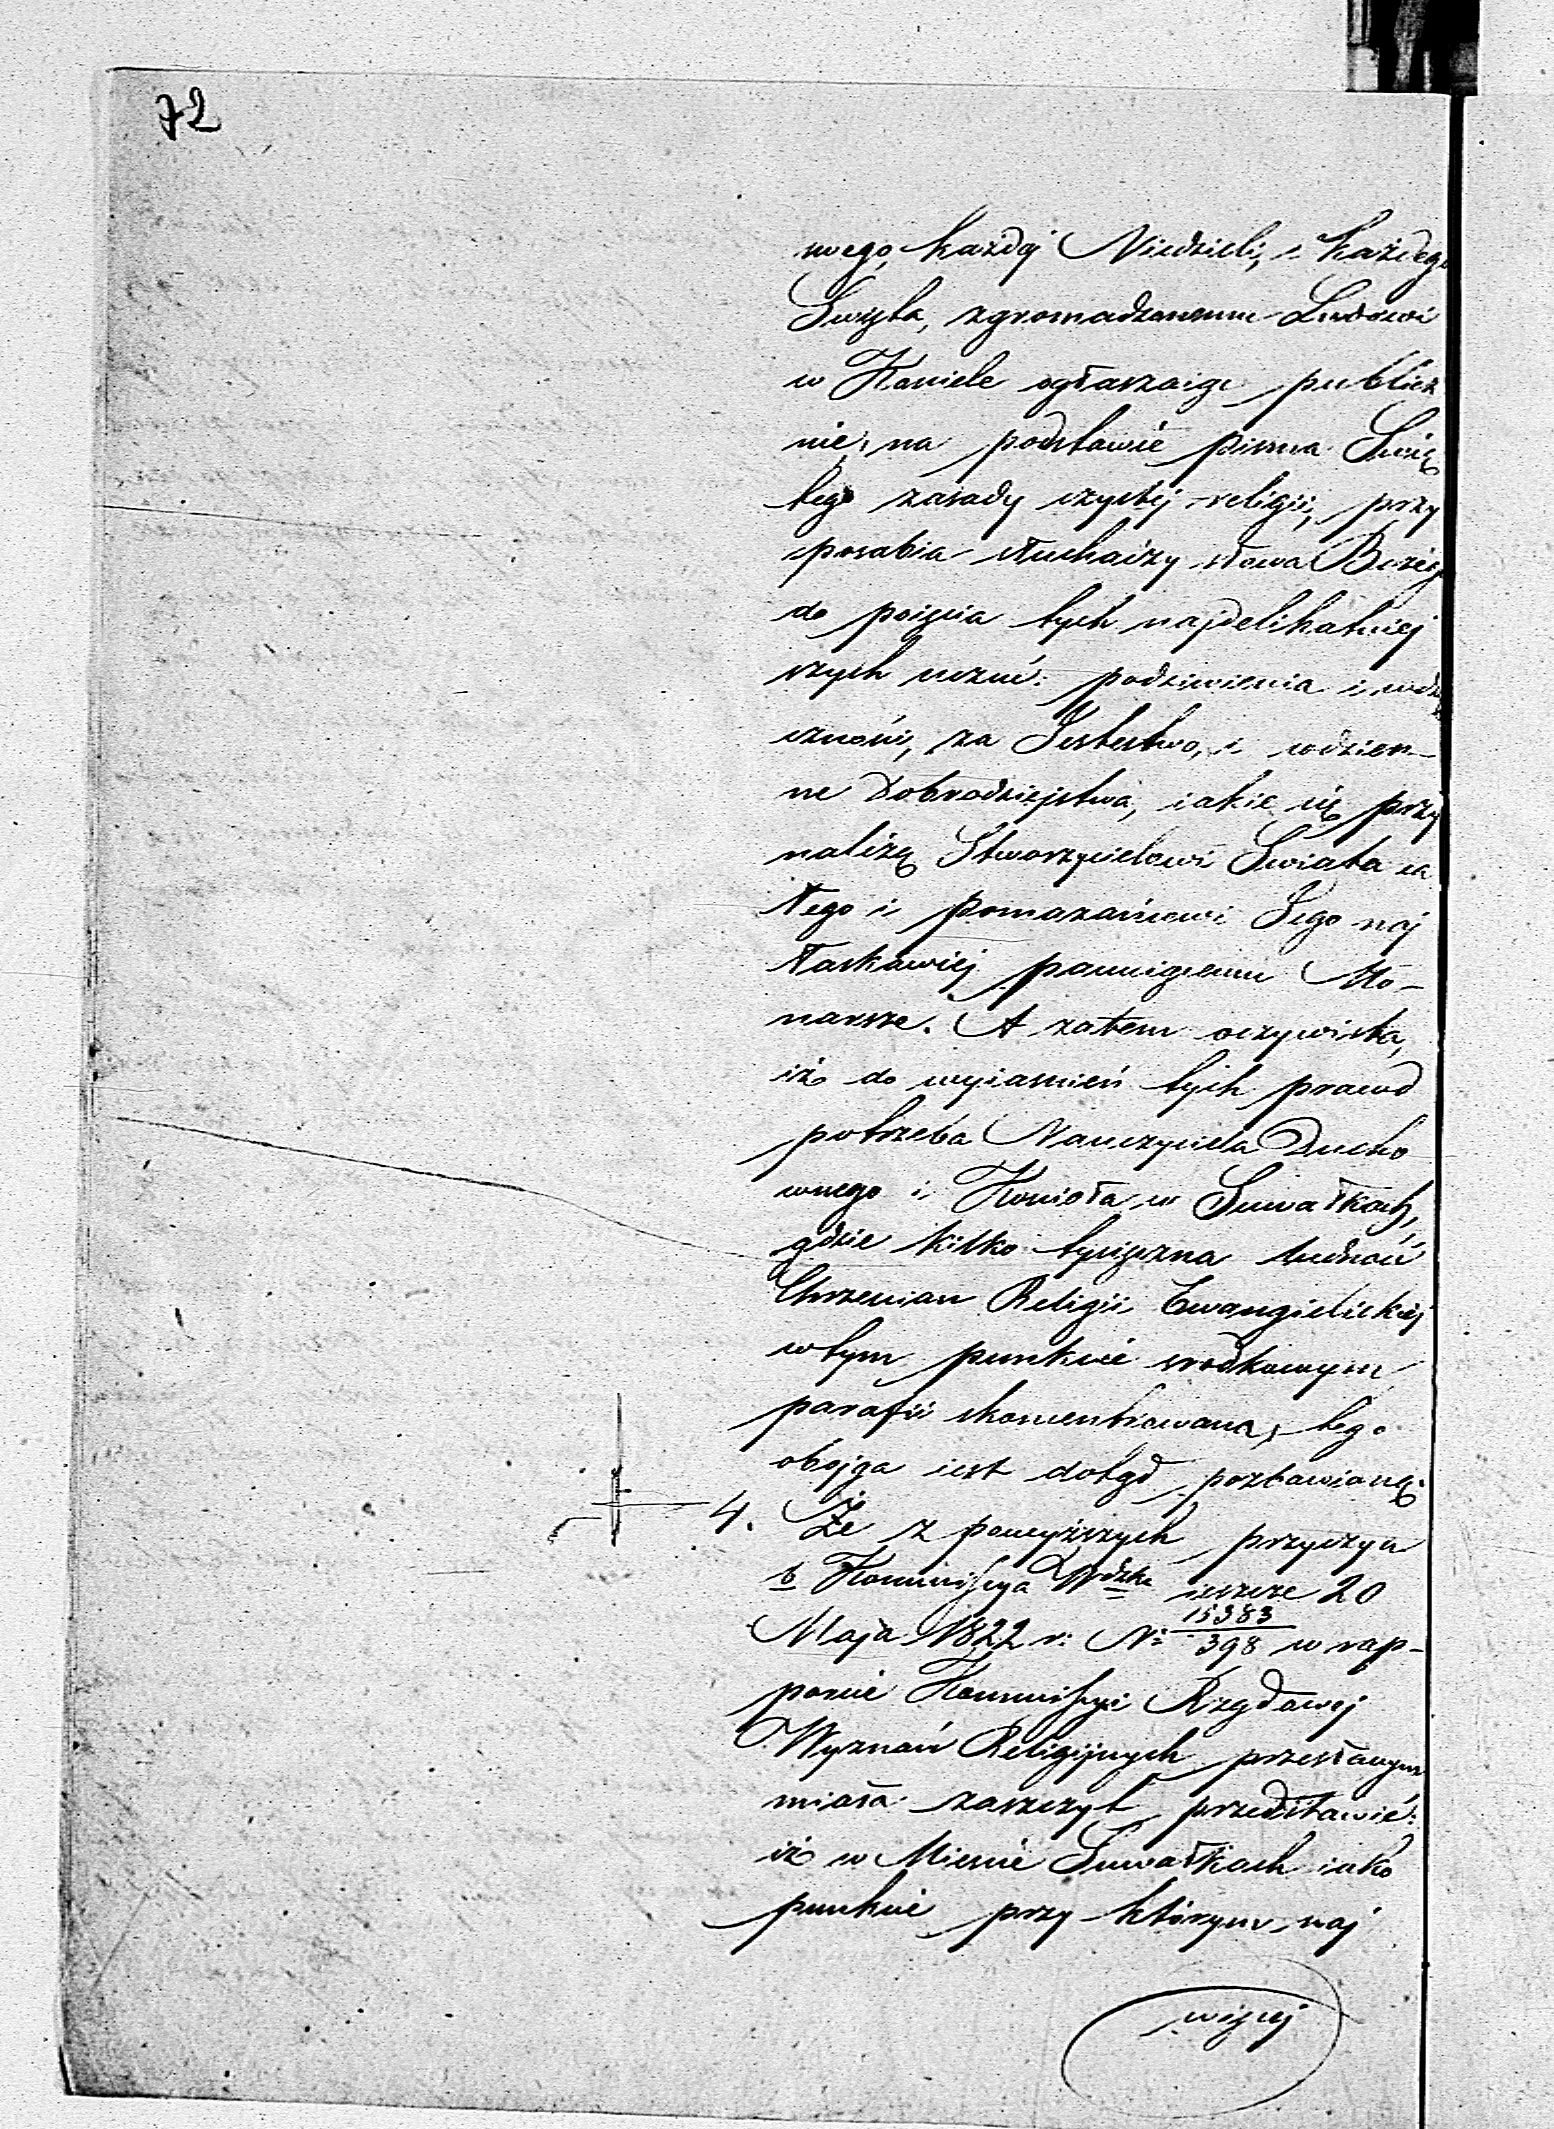 72
wnego, każdej Niedzieli, i każdego
Święta, zgromadzonemu Ludowi
w Kościele ogłaszaiąc publicz
nie, na podstawie pisma Świę
tego zasady czystej religii, przy
sposabia słuchaczy słowa Bożego
do poięcia tych najdelikatniej
szych uczuć: podziwienia i wdzię
czności, za Jestestwo, i codzien-
ne Dobrodziejstwa, iakie się przy
należą Stworzycielowi Świata ca
łego i pomazańcowi Jego naj
łaskawiej panuiącemu Mo-
narsze. A zatem oczywista,
iż do wyiaśnień tych prawd
potrzeba Nauczyciela Ducho
wnego i Kościoła w Suwałkach,
gdzie kilko tysiączna ludność
Chrześcian Religii Ewangielickiej
w tym punkcie srodkowym
parafii skoncentrowana, tego
obojga iest dotąd pozbawioną.
4. Że z powyższych przyczyn
b Kommissya Wdzka ieszcze 20
Maja 1822 r: N: 15383/398 w rap-
porcie Kommissyi Rządowej
Wyznań Religijnych przesłanym
miała zaszczyt przedstawić:
iż w Mieście Suwałkach iako
punkcie przy którym naj
więcej